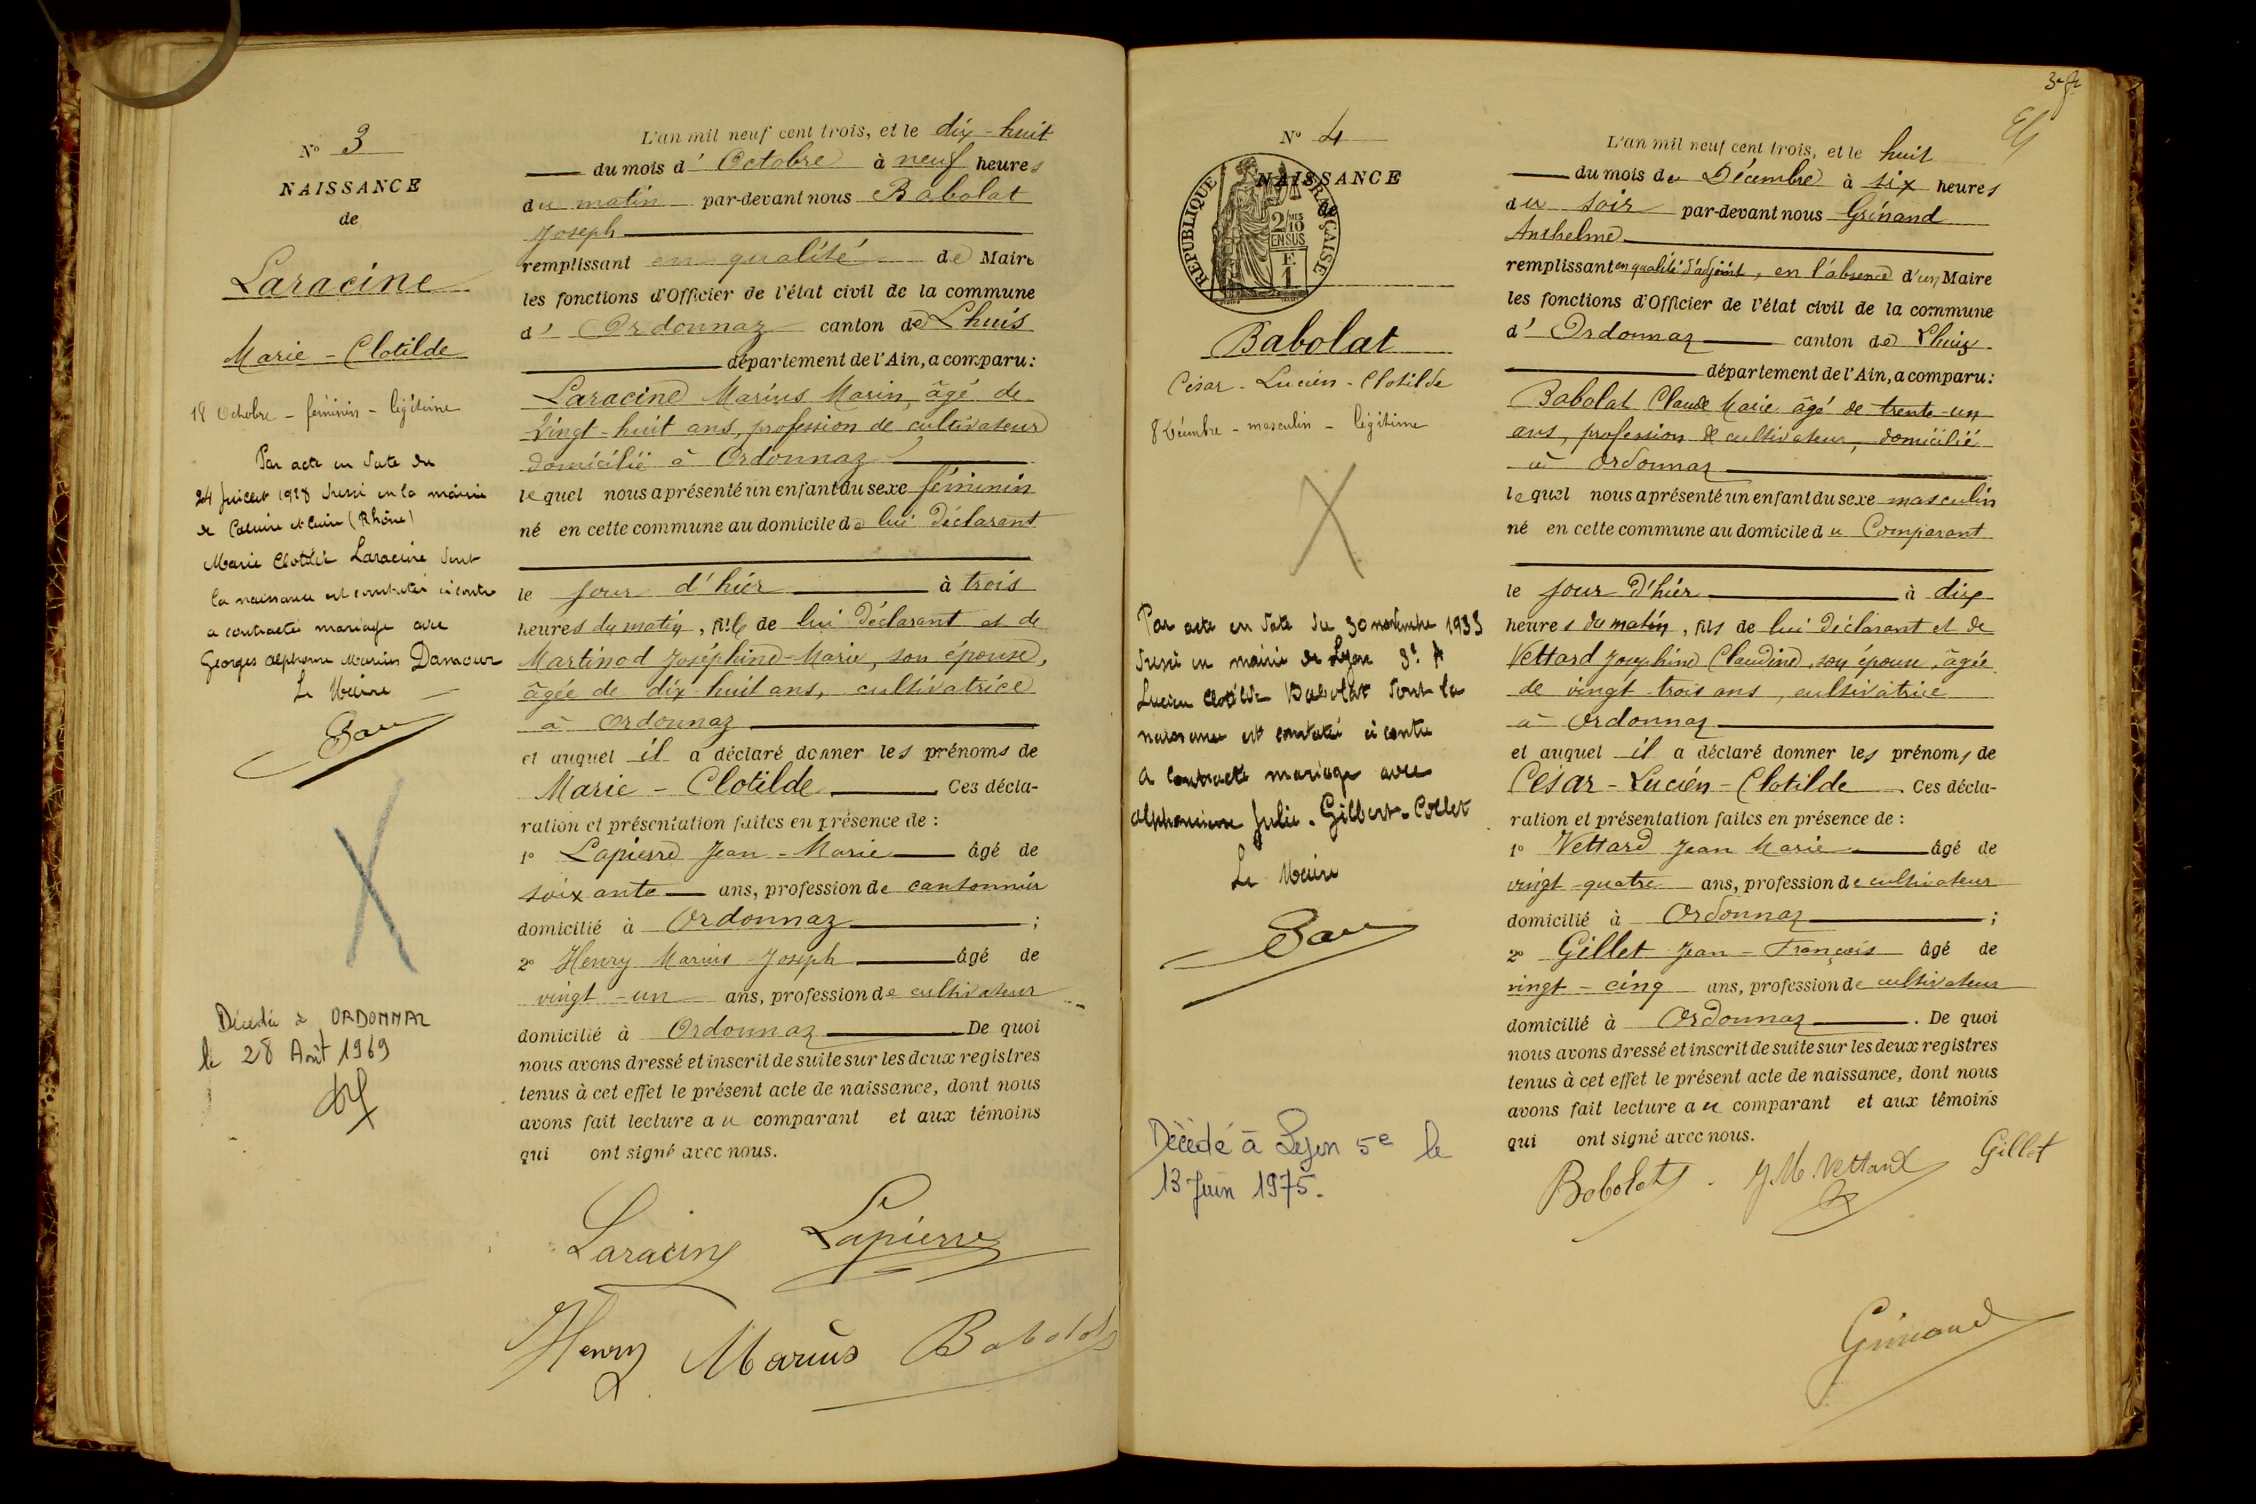 N° 3
NAISSANCE
de
Laracine
Marie - Clotilde
18 Octobre - féminin - légitime
Par acte en date du
24 Juillet 1928 dressé en la mairie
de Caluire et Cuire (Rhône)
Marie Clotilde Laracine dont
la naissance est constatée ci contre
a contracté mariage avec
Georges Alphonse Marius Damour
Le Maire
Décédée à ORDONNAZ
le 28 Août 1969
L'an mil neuf cent trois, et le dix-huit
du mois d' Octobre à neuf heures
du matin par-devant nous Babolat
Joseph
remplissant en qualité de Maire
les fonctions d'Officier de l'état civil de la commune
d' Ordonnaz canton de Lhuis
département de l'Ain, a comparu :
Laracine Marius Marin, âgé de
vingt-huit ans, profession de cultivateur
domicilié à Ordonnaz
lequel nous a présenté un enfant du sexe féminin
né en cette commune au domicile de lui déclarant
le jour d'hier à trois
heures du matin, fille de lui déclarant et de
Martinod Joséphine-Marie, son épouse,
âgée de dix-huit ans, cultivatrice
à Ordonnaz
et auquel il a déclaré donner les prénoms de
Marie - Clotilde Ces décla-
ration et présentation faites en présence de :
1° Lapierre Jean-Marie âgé de
soixante ans, profession de cantonnier
domicilié à Ordonnaz ;
2° Henry Marius Joseph âgé de
vingt-un ans, profession de cultivateur
domicilié à Ordonnaz De quoi
nous avons dressé et inscrit de suite sur les deux registres
tenus à cet effet le présent acte de naissance, dont nous
avons fait lecture au comparant et aux témoins
qui ont signé avec nous.
Laracine Lapierre
Henry Marius Babolat
3e f
N° 4
NAISSANCE
de
RÉPUBLIQUE FRANÇAISE
2/10
EN SUS
F
1
Babolat
César - Lucien - Clotilde
8 Décembre - masculin - légitime
Par acte en date du 30 novembre 1933
dressé en mairie de Lyon 3e A
Lucien Clotilde Babolat dont la
naissance est constatée ci contre
a contracté mariage avec
Alphonsine Julie Gilbert-Collet
Le Maire
Décédé à Lyon 5e le
13 Juin 1975.
L'an mil neuf cent trois, et le huit
du mois de Décembre à six heures
du soir par-devant nous Grinand
Anthelme
remplissant en qualité d'adjoint, en l'absence d'un Maire
les fonctions d'Officier de l'état civil de la commune
d' Ordonnaz canton de Lhuis
département de l'Ain, a comparu :
Babolat Claude Marie âgé de trente-un
ans, profession de cultivateur, domicilié
à Ordonnaz
lequel nous a présenté un enfant du sexe masculin
né en cette commune au domicile du Comparant
le jour d'hier à dix
heures du matin, fils de lui déclarant et de
Vettard Joséphine Claudine, son épouse, âgée
de vingt-trois ans, cultivatrice
à Ordonnaz
et auquel il a déclaré donner les prénoms de
César - Lucien - Clotilde. Ces décla-
ration et présentation faites en présence de :
1° Vettard Jean Marie âgé de
vingt-quatre ans, profession de cultivateur
domicilié à Ordonnaz ;
2° Gillet Jean-François âgé de
vingt-cinq ans, profession de cultivateur
domicilié à Ordonnaz. De quoi
nous avons dressé et inscrit de suite sur les deux registres
tenus à cet effet le présent acte de naissance, dont nous
avons fait lecture au comparant et aux témoins
qui ont signé avec nous.
Babolat J M Vettard Gillet
Grinand